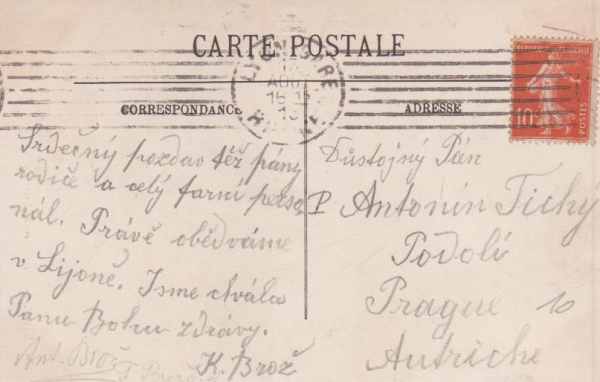 CARTE POSTALE
LYON GARE
AOUT
15
13
RHONE
CORRESPONDANCE
ADRESSE
10
POSTES
Srdečný pozdav těž pány
rodiče a celý farní perso
nál. Právě obědváme
v Lijoně. Jsme chvála
Panu Bohu zdrávy.
K. Brož
Ant. Brož
Důstojný Pán
P Antonín Tichý
Podolí
Prague 10
Autriche